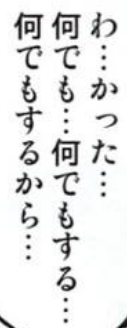 わ…かった…
何でも…何でもする…
何でもするから…